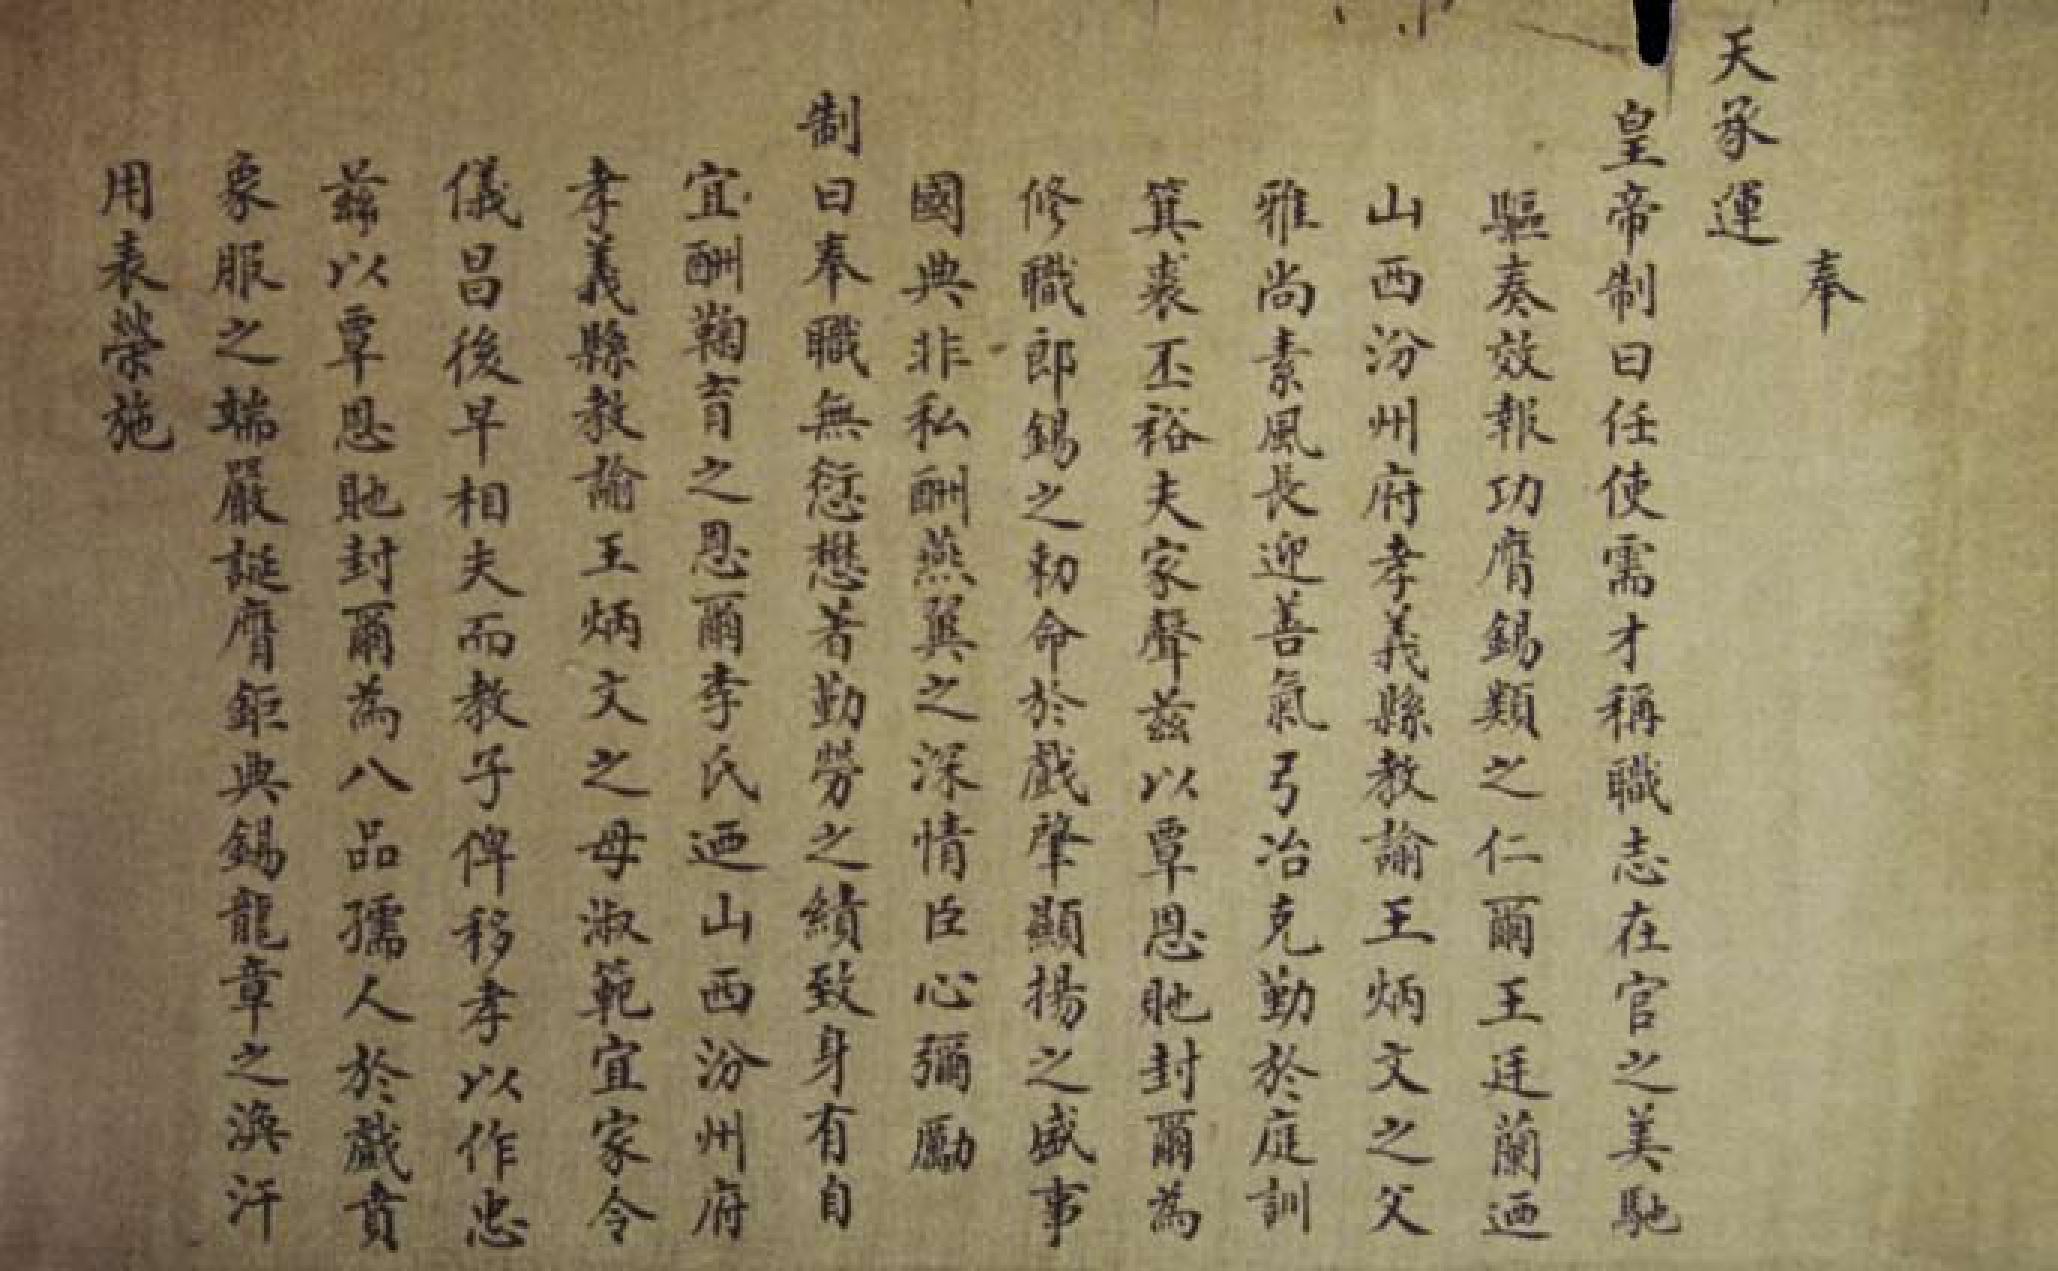 奉
天承運
皇帝制曰任使需才稱職志在官之美馳
驅奏效報功膺錫類之仁爾王廷蘭迺
山西汾州府孝義縣教諭王炳文之父
雅尚素風長迎善氣弓冶克勤於庭訓
箕裘丕裕夫家聲茲以覃恩貤封爾為
修職郎錫之勅命於戲肇顯揚之盛事
國典非私酬燕翼之深情臣心彌勵
制曰奉職無愆懋著勤勞之績致身有自
宜酬鞠育之恩爾李氏迺山西汾州府
孝義縣教諭王炳文之母淑範宜家令
儀昌後早相夫而教子俾移孝以作忠
茲以覃恩貤封爾為八品孺人於戲賁
象服之端嚴誕膺鉅典錫龍章之渙汗
用表榮施